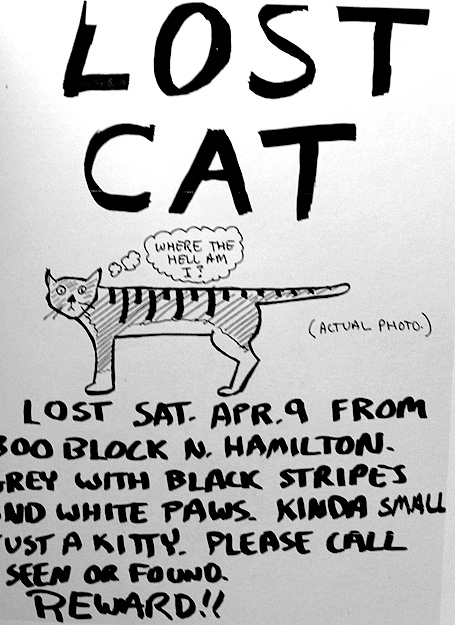 LOST
CAT
WHERE THE
HELL AM
I?
(ACTUAL PHOTO.)
LOST SAT. APR. 9 FROM
300 BLOCK N. HAMILTON.
GREY WITH BLACK STRIPES
AND WHITE PAWS. KINDA SMALL
JUST A KITTY. PLEASE CALL
SEEN OR FOUND.
REWARD!!